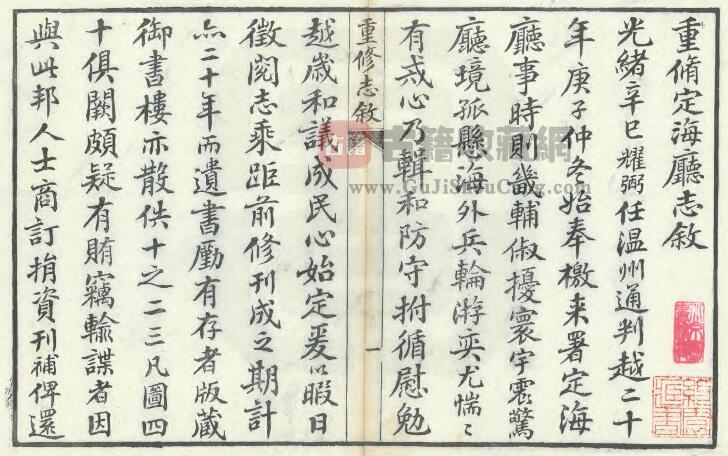 重脩定海廳志敘
光緒辛巳燿弼任温州通判越二十
年庚子仲冬始奉檄來署定海
廳事時則畿輔俶擾寰宇震驚
廳境孤懸海外兵輪游奕尤惴〻
有戒心乃輯和防守拊循慰勉
重修志敘
一
越歲和議成民心始定爰以暇日
徵閱志乘距前修刊成之期計
二十年而遺書尠有存者版藏
御書樓亦散佚十之二三凡圖四
十俱闕頗疑有賄竊輸諜者因
與此邦人士商訂捐資刊補俾還
古籍
www.GuJiShuCang.com